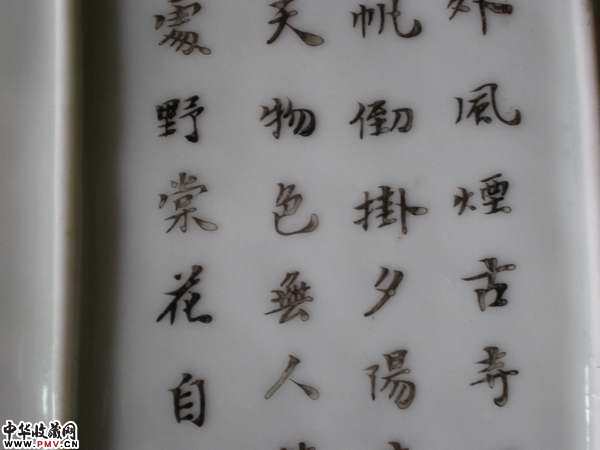 風煙古寺
帆倒掛夕陽
天物色無人
處野棠花自
中华收藏网
www.PMV.CN